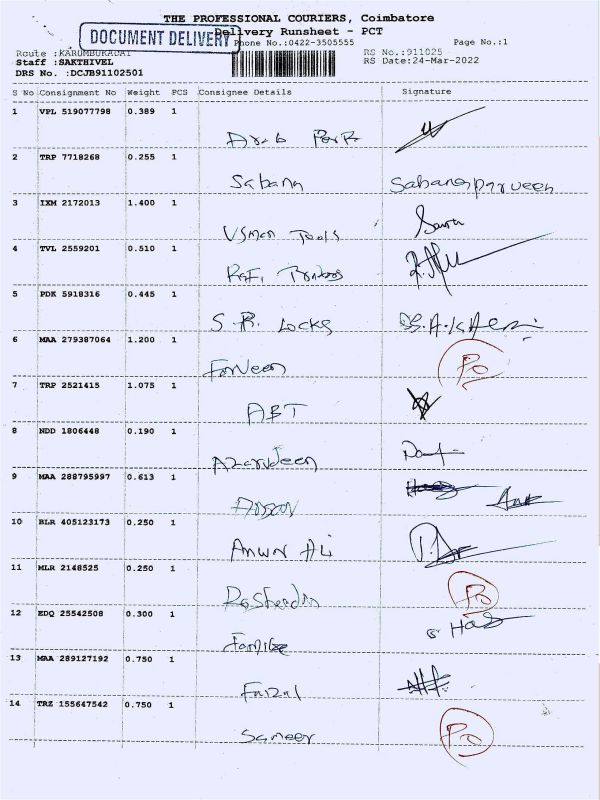 THE PROFESSIONAL COURIERS, Coimbatore
Delivery Runsheet - PCT
DOCUMENT DELIVERY
Phone No.:0422-3505555
Page No.:1
Route :KARUMBUKADAI
RS No.:911025
Staff :SAKTHIVEL
RS Date:24-Mar-2022
DRS No. :DCJB91102501
S No Consignment No Weight PCS Consignee Details Signature
1 VPL 519077798 0.389 1
Arab Park
2 TRP 7718268 0.255 1
Sabana Sabanaparveen
3 IXM 2172013 1.400 1
Usman Tools
4 TVL 2559201 0.510 1
Rafi
5 PDK 5918316 0.445 1
S.R. Locks
6 MAA 279387064 1.200 1
Farveen
7 TRP 2521415 1.075 1
ABT
8 NDD 1806448 0.190 1
Azarudeen
9 MAA 288795997 0.613 1
10 BLR 405123173 0.250 1
Anwar Ali
11 MLR 2148525 0.250 1
12 EDQ 25542508 0.300 1
13 MAA 289127192 0.750 1
Faizal
14 TRZ 155647542 0.750 1
Sameer